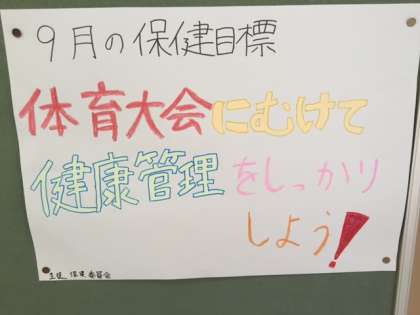 9月の保健目標
体育大会にむけて
健康管理をしっかり
しよう!
生徒 保健委員会